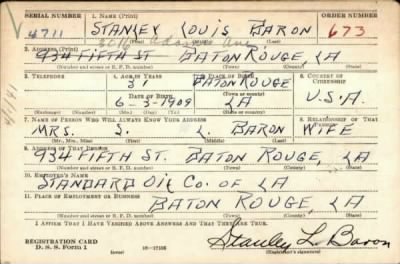 SERIAL NUMBER 1. NAME (Print) ORDER NUMBER
4711 STANLEY LOUIS BARON 673
3616 Adams Ave
2. ADDRESS (Print)
934 FIFTH ST. BATON ROUGE, LA
(Number and street or R. F. D. number) (Town) (County) (State)
3. TELEPHONE 4. AGE IN YEARS 5. PLACE OF BIRTH 6. COUNTRY OF CITIZENSHIP
31 BATON ROUGE
DATE OF BIRTH (Town or county)
6-3-1909 LA U.S.A.
(Mo.) (Day) (Yr.) (State or country)
7. NAME OF PERSON WHO WILL ALWAYS KNOW YOUR ADDRESS 8. RELATIONSHIP OF THAT PERSON
MRS. S. L. BARON WIFE
(Mr., Mrs., Miss) (First) (Middle) (Last)
9. ADDRESS OF THAT PERSON
934 FIFTH ST. BATON ROUGE, LA
(Number and street or R. F. D. number) (Town) (County) (State)
10. EMPLOYER'S NAME
STANDARD OIL CO. OF LA
11. PLACE OF EMPLOYMENT OR BUSINESS
BATON ROUGE, LA
(Number and street or R. F. D. number) (Town) (County) (State)
I AFFIRM THAT I HAVE VERIFIED ABOVE ANSWERS AND THAT THEY ARE TRUE.
REGISTRATION CARD
D. S. S. Form 1 (over) Stanley L. Baron
(Registrant's signature)